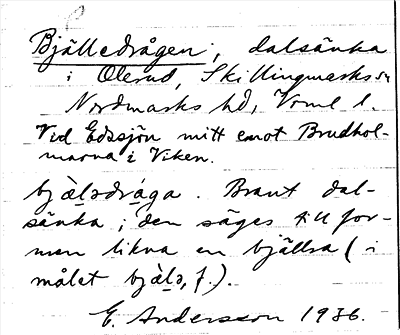 Bjälledrågen, dalsänka
i Olerud, Skillingmarks sn
Nordmarks hd, Vrml l.
Vid Edssjön mitt emot Brudhol-
marna i Viken.
bjæ̀lədråga. Brant dal-
sänka; den säges till for-
men likna en bjällra (i
målet bjæ̀lə, f.).
E. Andersson 1936.